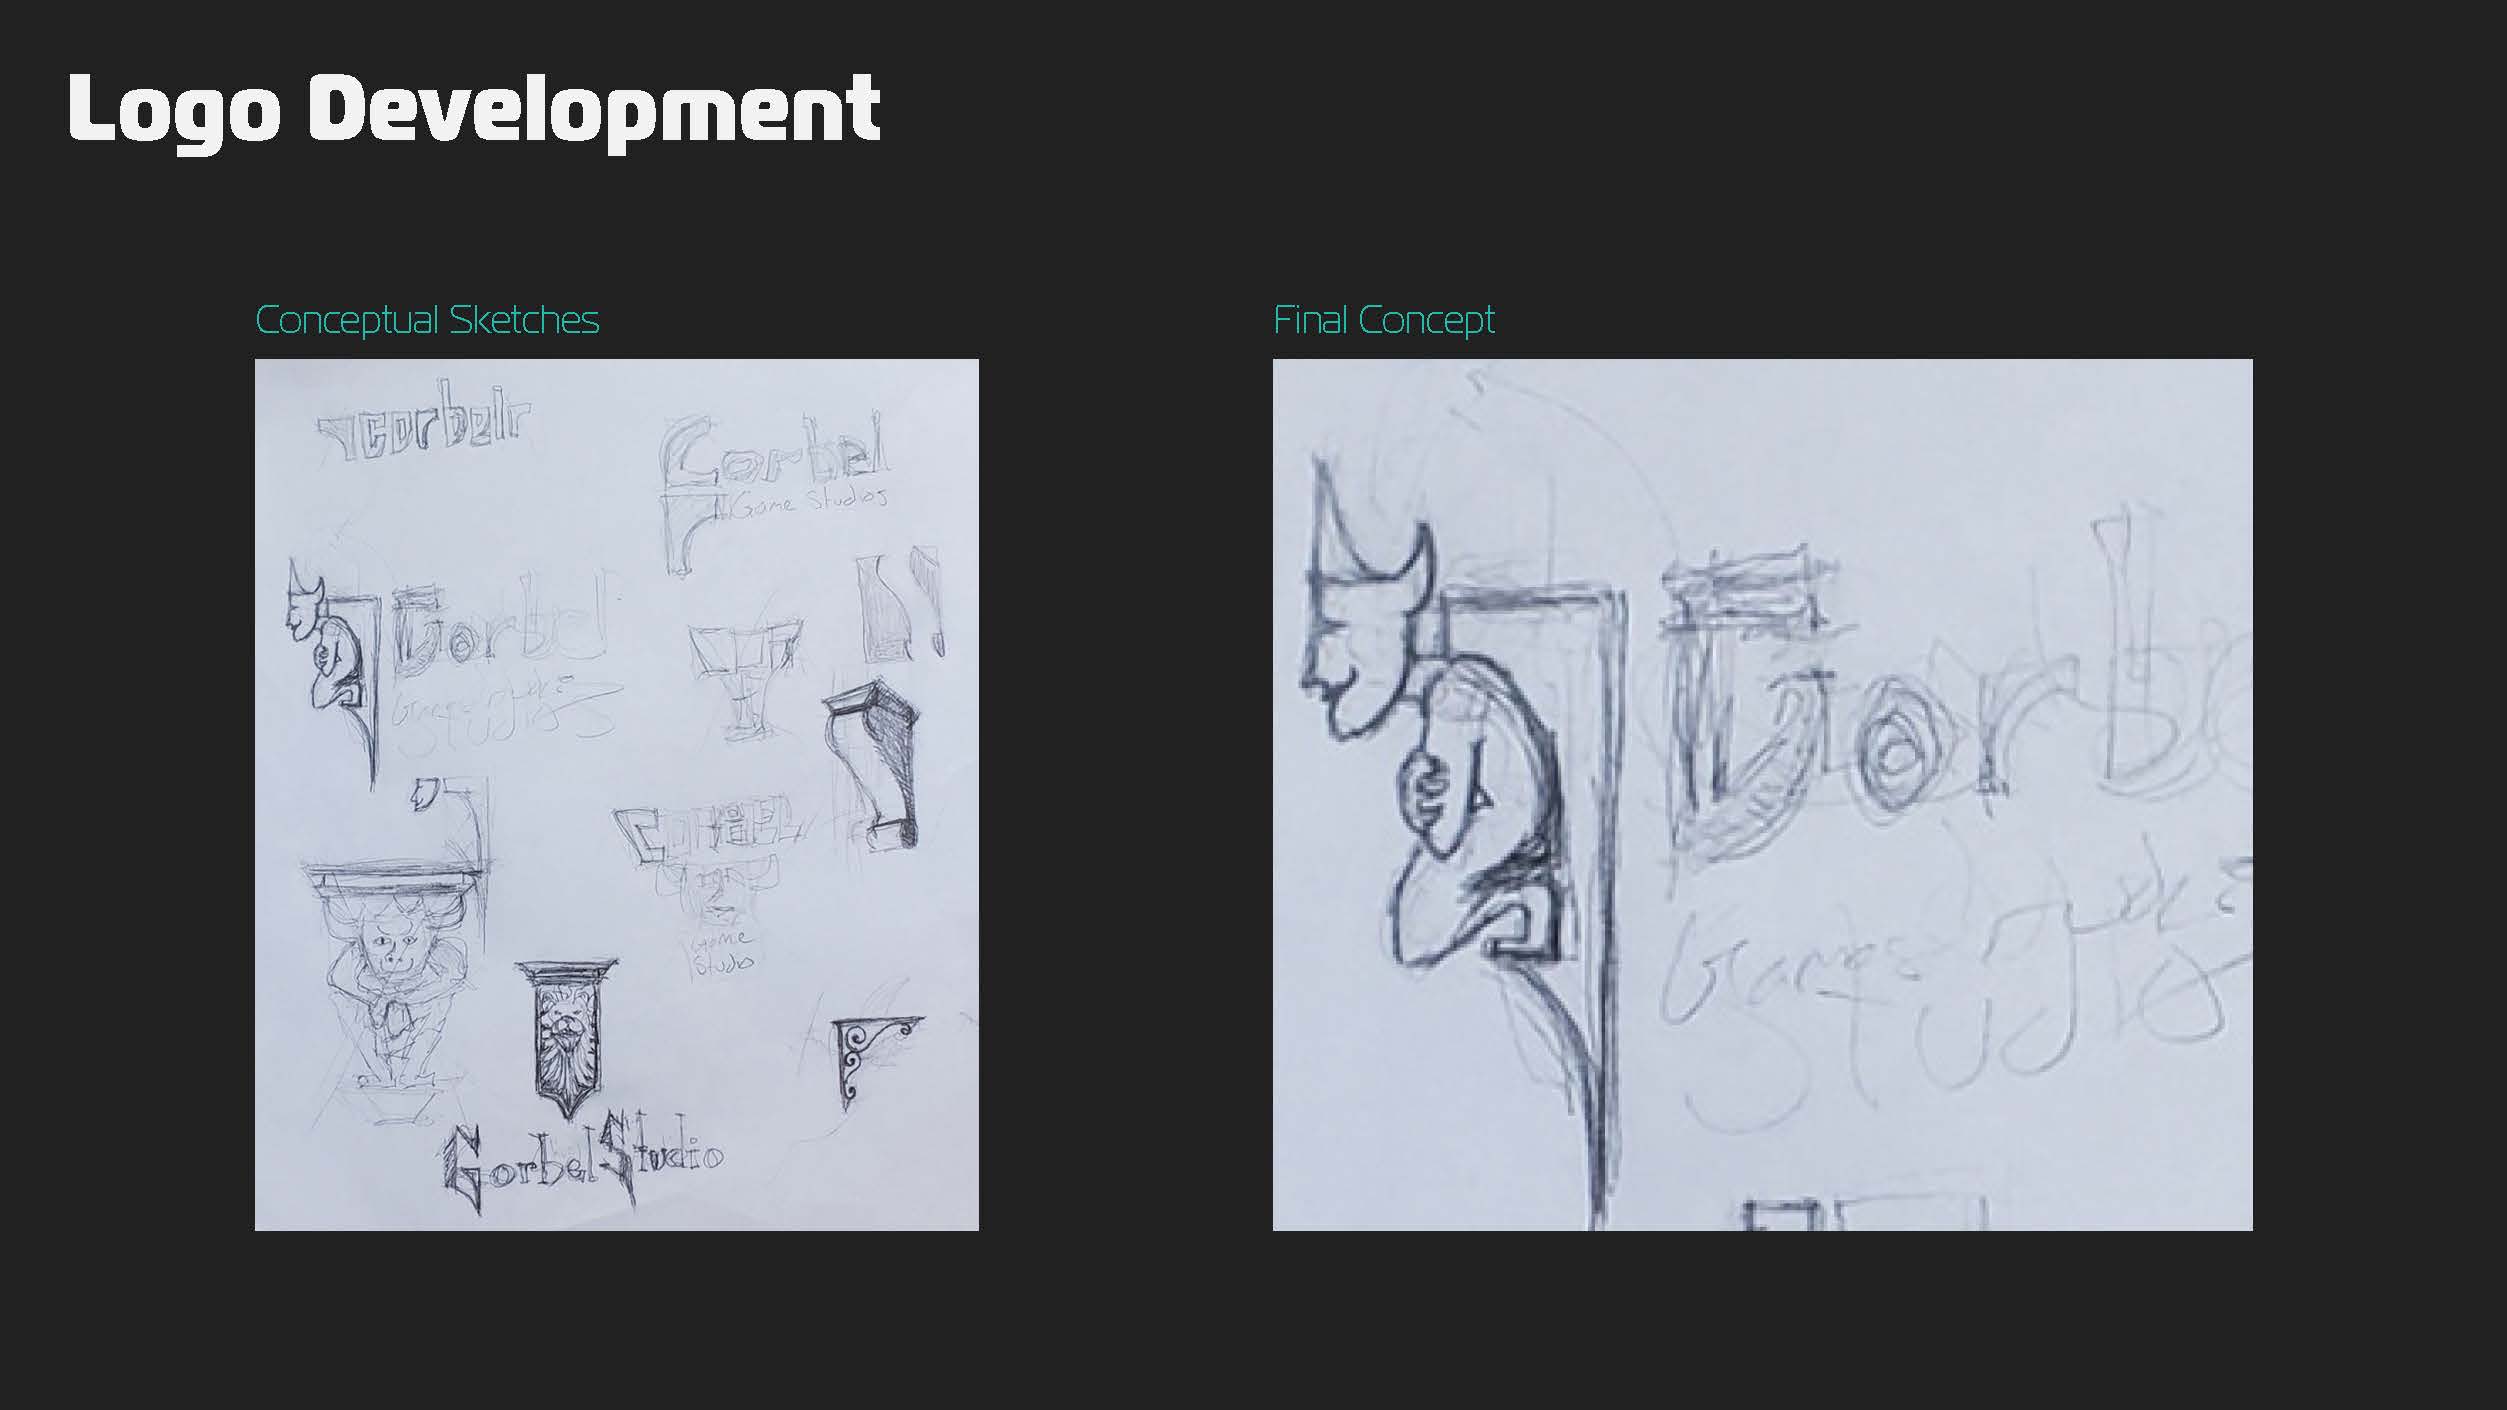 Logo Development
Conceptual Sketches
corbelr
Corbel
Game Studios
Corbel
Games Studios
Corbel
Game
Studio
Corbel Studio
Final Concept
Corbe
Games
Studios